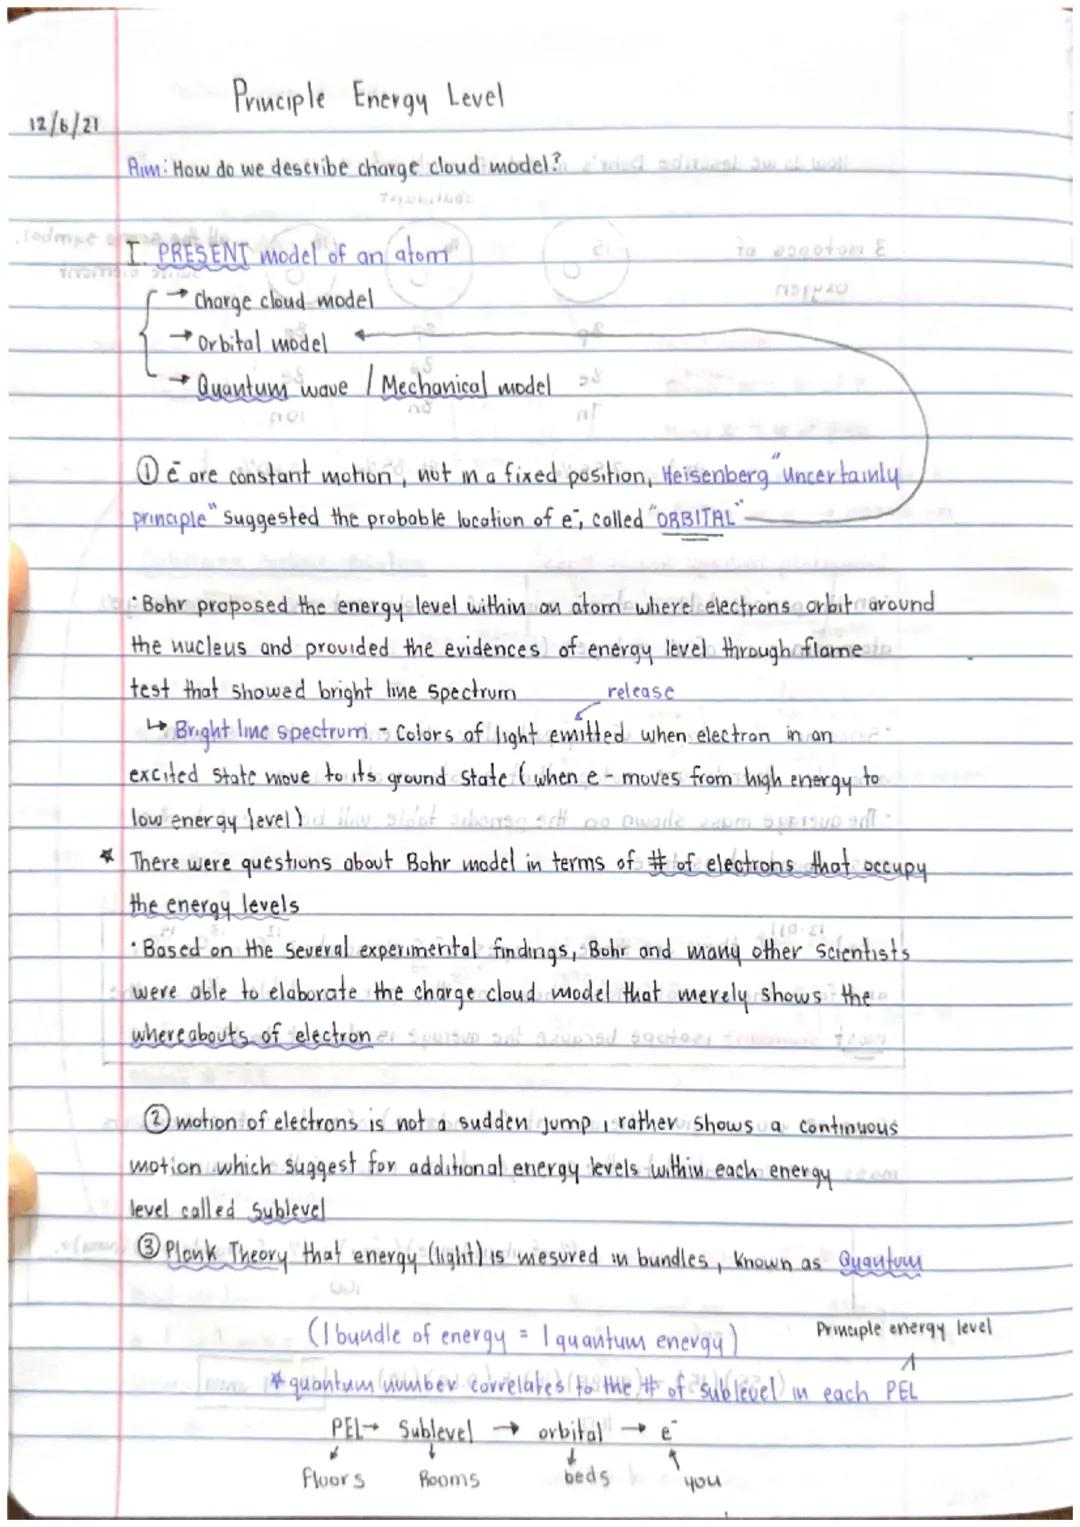 Principle Energy Level
12/6/21
Aim: How do we describe charge cloud model?
I. PRESENT model of an atom
→ Charge cloud model
→ Orbital model
→ Quantum wave / Mechanical model
① e⁻ are constant motion, not in a fixed position, Heisenberg "Uncertainly
principle" suggested the probable location of e⁻, called "ORBITAL"
• Bohr proposed the energy level within an atom where electrons orbit around
the nucleus and provided the evidences of energy level through flame
test that showed bright line spectrum
release
↳ Bright line spectrum - Colors of light emitted when electron in an
excited state move to its ground state (when e - moves from high energy to
low energy level)
* There were questions about Bohr model in terms of # of electrons that occupy
the energy levels
• Based on the several experimental findings, Bohr and many other scientists
were able to elaborate the charge cloud model that merely shows the
whereabouts of electron
② motion of electrons is not a sudden jump, rather shows a continuous
motion which suggest for additional energy levels within each energy
level called sublevel
③ Plank Theory that energy (light) is mesured in bundles, known as Quantum
(1 bundle of energy = 1 quantum energy)
Principle energy level
* quantum number correlates to the # of sublevel in each PEL
PEL → Sublevel → orbital → e⁻
floors Rooms beds you